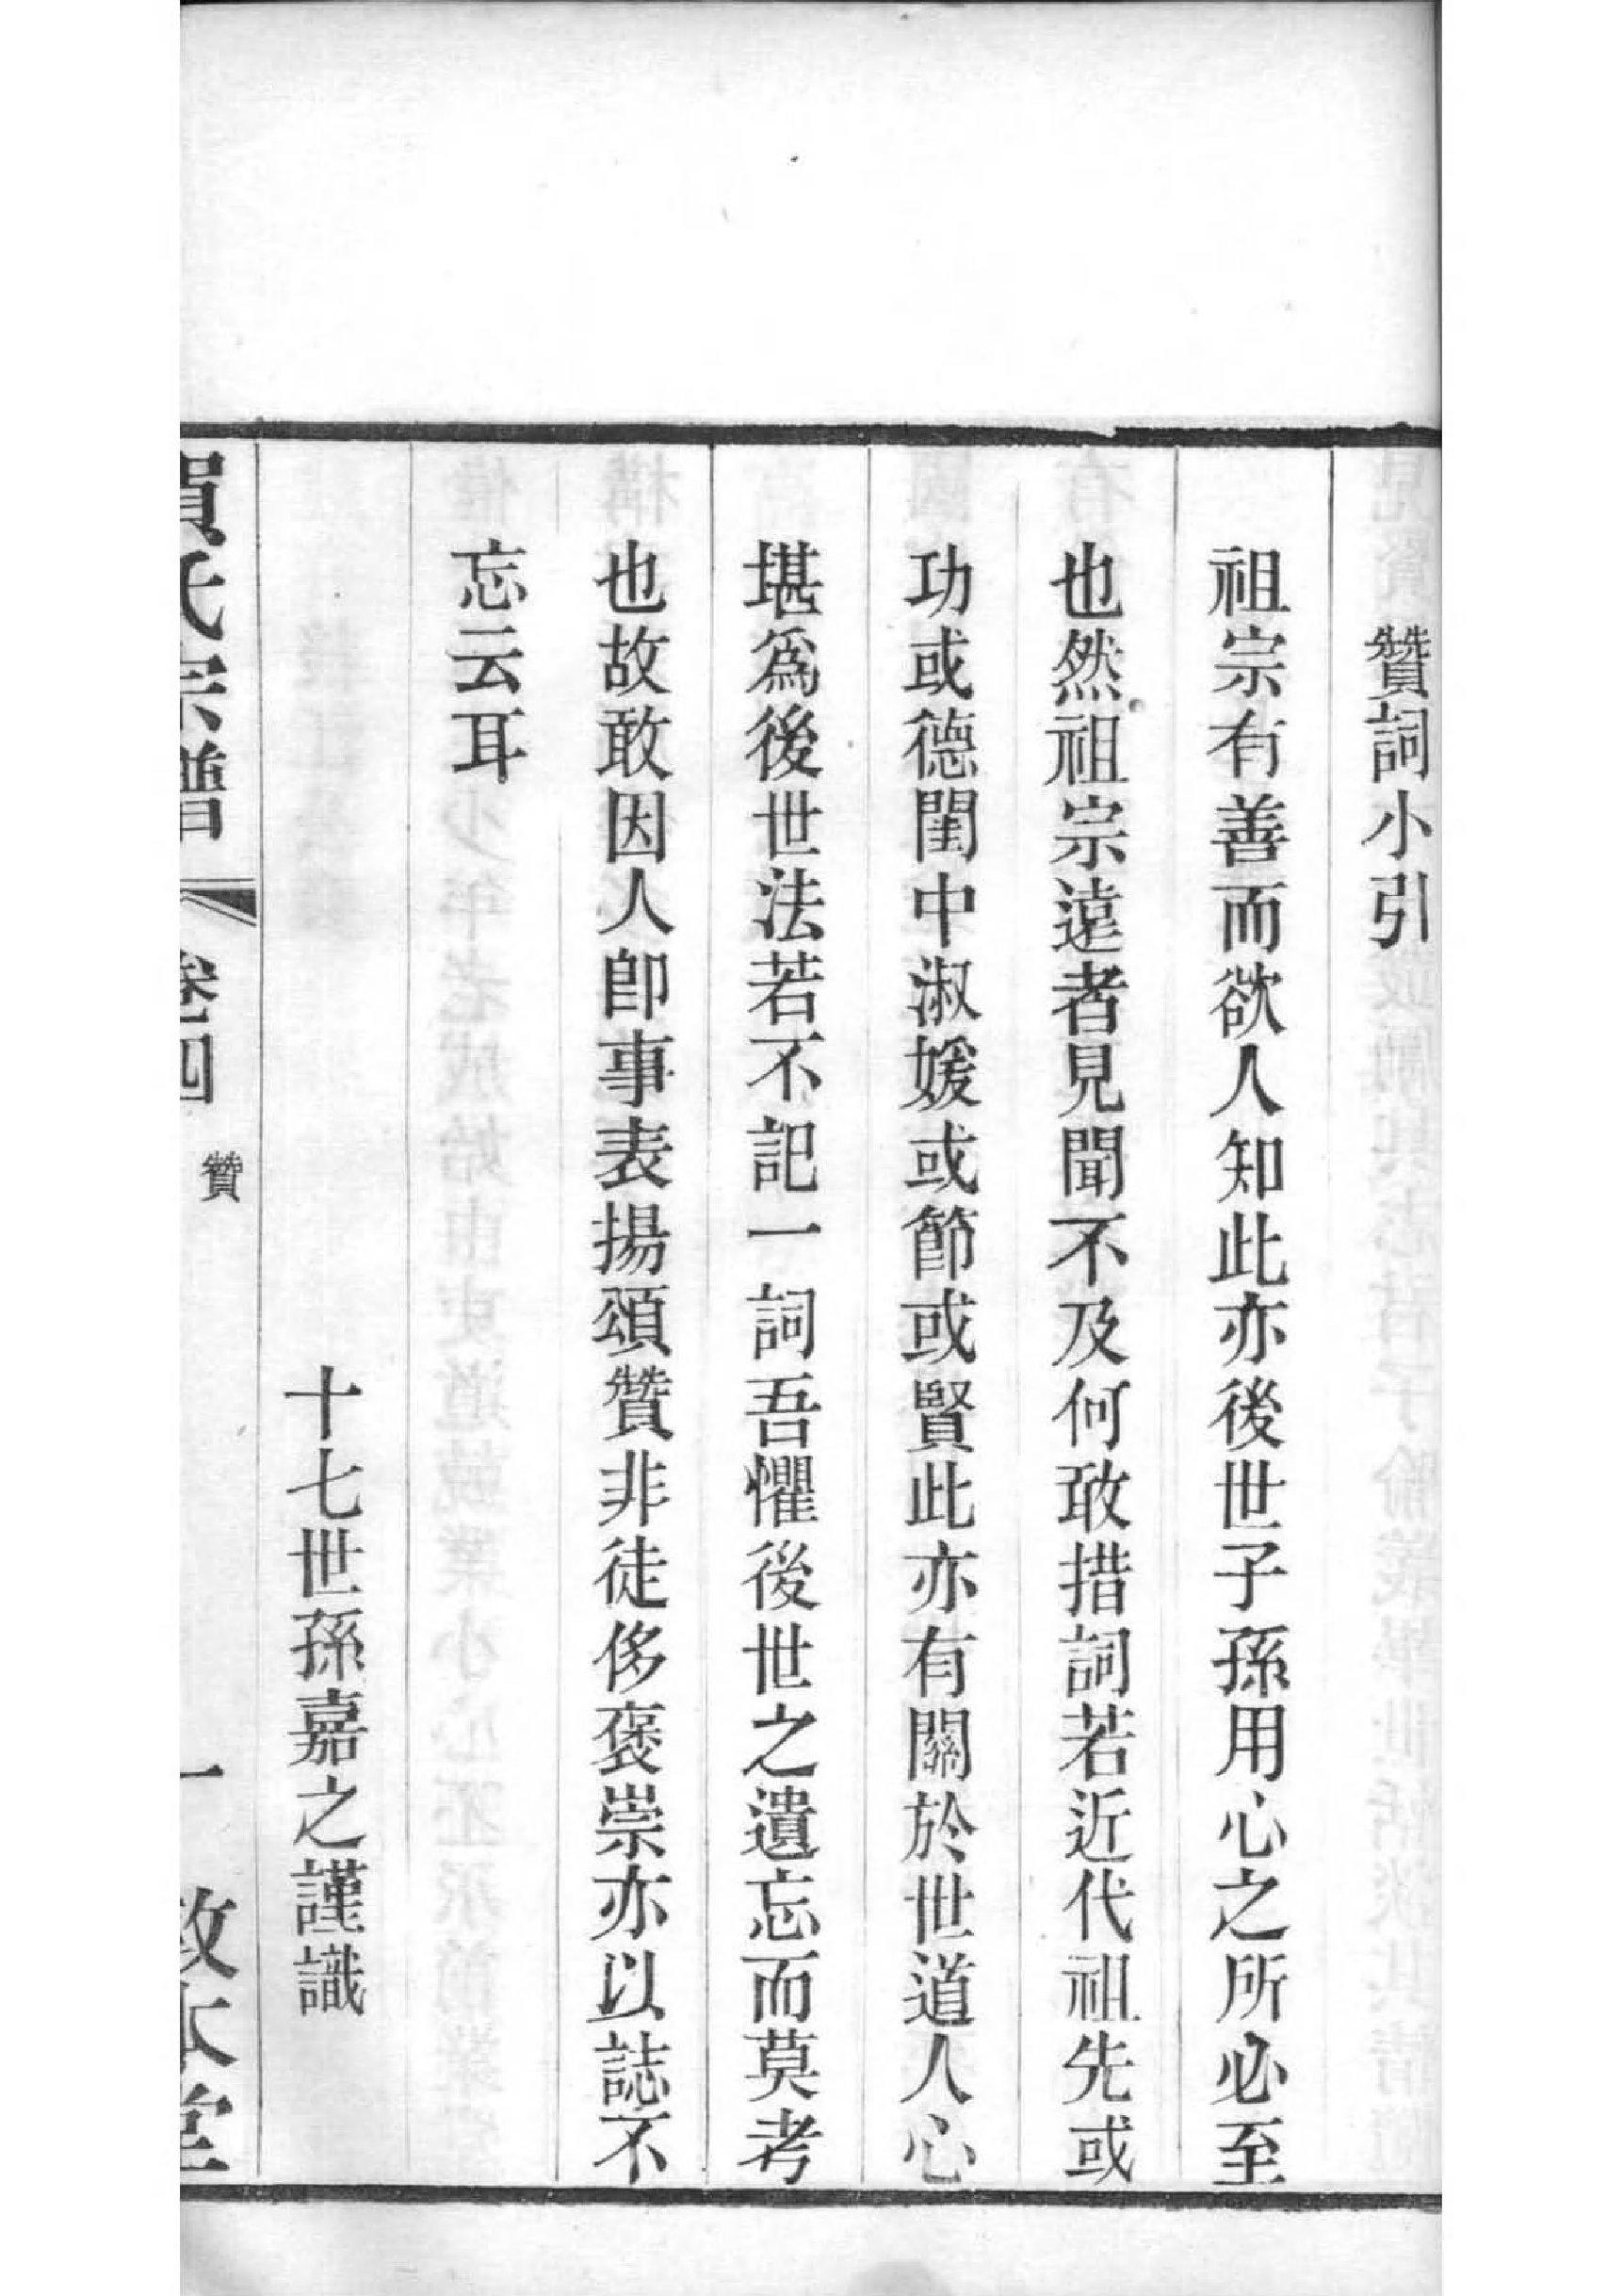 贊詞小引
祖宗有善而欲人知此亦後世子孫用心之所必至
也然祖宗遠者見聞不及何敢措詞若近代祖先或
功或德閨中淑媛或節或賢此亦有關於世道人心
堪爲後世法若不記一詞吾懼後世之遺忘而莫考
也故敢因人卽事表揚頌贊非徒侈褒崇亦以誌不
忘云耳
十七世孫嘉之謹識
氏宗譜 卷四 贊 一 敦本堂